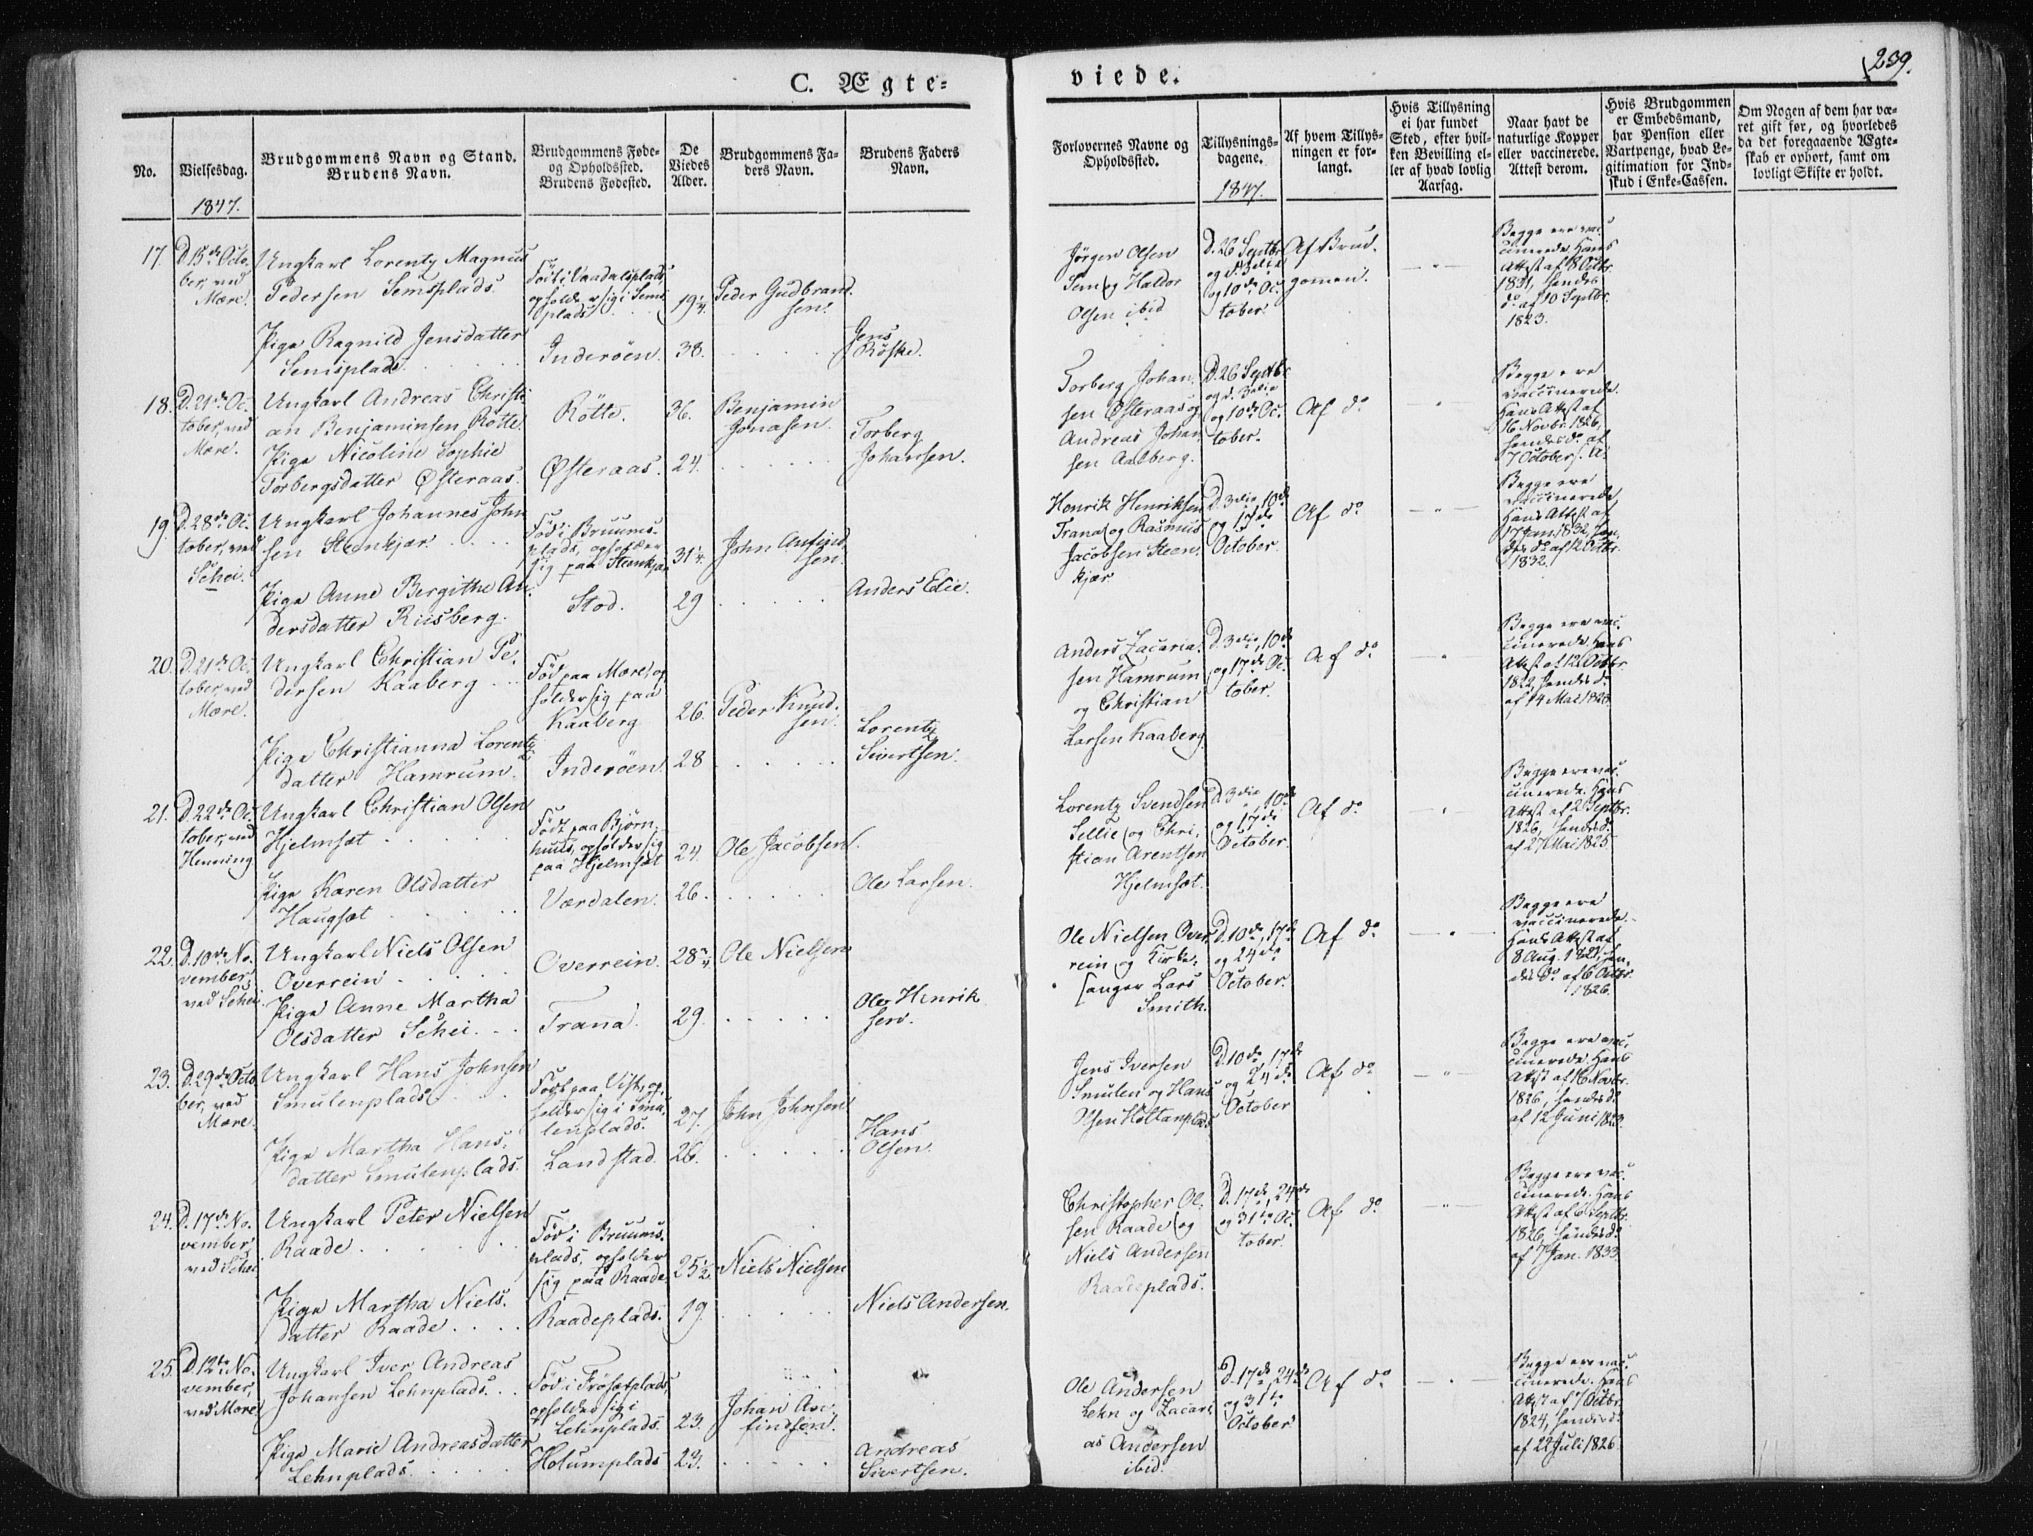 239.
C. Ægte=
viede.
No.
Vielsesdag.
Brudgommens Navn og Stand.
Brudens Navn.
Brudgommens Føde-
og Opholdssted.
Brudens Fødested.
De
Viedes
Alder.
Brudgommens Fa-
ders Navn.
Brudens Faders
Navn.
Forlovernes Navne og
Opholdssted.
Tillysnings-
dagene.
Af hvem Tillys-
ningen er for-
langt.
Hvis Tillysning
ei har fundet
Sted, efter hvil-
ken Bevilling el-
ler af hvad lovlig
Aarsag.
Naar havt de
naturlige Kopper
eller vaccinerede.
Attest derom.
Hvis Brudgommen
er Embedsmand,
har Pension eller
Vartpenge, hvad Le-
gitimation for Ind-
skud i Enke-Cassen.
Om Nogen af dem har væ-
ret gift før, og hvorledes
da det foregaaende Ægte-
skab er ophørt, samt om
lovligt Skifte er holdt.
1847.
1847.
17.
D. 15de Octo-
ber, ved
Mære.
Ungkarl Lorentz Magnus
Pedersen Semsplads.
Pige Ragnild Jensdatter
Semsplads.
Født i Vaadalsplads,
opholder sig i Sems-
plads
Inderøen.
19 1/4.
38.
Peder Gudbrand-
sen.
Jens
Røske.
Jørgen Olsen
Sem og Haldor
Olsen ibid
D. 26 Septbr.
og d. 3die
og 10de Oc-
tober.
Af Brud-
gomen.
Begge ere vac-
cinerede. Hans
Attest af 8 Octbr.
1831, hendes
do af 10 Septbr.
1823.
18.
D. 21de Oc-
tober, ved
Mære.
Ungkarl Andreas Christi-
an Benjaminsen Røtte.
Pige Nicoline Sophie
Torbergsdatter Østeraas.
Røtte.
Østeraas.
36.
24.
Benjamin
Jonasen.
Torberg
Johansen.
Torberg Johan-
sen Østeraas og
Andreas Johan-
sen Aalberg.
D. 26 Septbr.
og d. 3die
og 10de Oc-
tober.
Af do
Begge ere
vaccinerede.
Hans Attest af
16 Novbr. 1826,
hendes do af
7 October s. A.
19.
D. 28de Oc-
tober, ved
Schei.
Ungkarl Johannes John-
sen Steenkjær.
Pige Anne Bergithe An-
dersdatter Riisberg.
Fød i Bruums-
plads, opholder
sig paa Steenkjær
Stod.
31 1/4.
29
John
sen.
Anders Elie.
Henrik Henriksen
Trana og Rasmus
Jacobsen Steen-
kjær
D. 3die, 10de
og 17de
October.
Af do
Begge ere
vaccinerede,
Hans Attest af
17 Jan. 1832, hen-
des do af 12 Octbr.
1832.
20.
D. 21de Oc-
tober, ved
Mære.
Ungkarl Christian Pe-
dersen Kaaberg
Pige Christianna Lorentz-
datter Hamrum.
Fød paa Mære, op-
holder sig paa
Kaaberg
Inderøen.
26.
28
Peder Knud-
sen.
Lorentz
Sivertsen.
Anders Zacaria-
sen Hamrum
og Christian
Larsen Kaaberg.
D. 3die, 10de
og 17de Oc-
tober.
Af do
Begge ere vac-
cinerede. Hans
Attest af 12 Octbr
1822, hendes do
af 14 Mai 1823.
21.
D. 22de Oc-
tober, ved
Henning
Ungkarl Christian Olsen
Hjelmsæt
Pige Karen Olsdatter
Haugsæt
Født paa Bjørn-
huus, opholder sig
paa Hjelmsæt
Værdalen.
24.
26.
Ole Jacobsen.
Ole Larsen.
Lorentz Svendsen
Sellie og Chri-
stian Arentsen
Hjelmsæt.
D. 3die, 10de
og 17de
October.
Af do
Begge ere vac-
cinerede. Hans
Attest af 2 Septbr.
1826, hendes do
af 27 Mai 1825.
22.
D. 10de No-
vember,
ved Schei.
Ungkarl Niels Olsen
Overrein
Pige Anne Martha
Olsdatter Schei.
Overrein.
Trana.
28 3/4
29.
Ole Nielsen
Ole Henrik-
sen.
Ole Nielsen Over-
rein og Kirke-
sanger Lars
Smith.
D. 10de, 17de
og 24de
October.
Af do
Begge ere
vaccinerede.
Hans Attest af
8 Aug. 1821, hen-
des do af 6 Octbr.
1826.
23.
D. 29de Octo-
ber, ved
Mære.
Ungkarl Hans Johnsen
Smulenplads
Pige Martha Hans-
datter Smulenplads.
Født paa Vist, op-
holder sig i Smu-
lenplads.
Landstad.
27.
26.
John Johnsen
Hans
Olsen.
Jens Iversen
Smulen og Hans
Olsen Holtanplads
D. 10de, 17de
og 24de
October
Af do
Begge ere vac-
cinerede. Hans
Attest af 16 Novbr.
1826, hendes do
af 12 Juni 1823.
24.
D. 17de No-
vember,
ved Schei
Ungkarl Peter Nielsen
Raade.
Pige Martha Niels-
datter Raade.
Fød i Bruums-
plads, opholder
sig paa Raade
Raadeplads.
25 1/2.
19.
Niels Nielsen
Niels Andersen.
Christopher Ol-
sen Raade og
Niels Andersen
Raadeplads.
D. 17de, 24de
og 31te Oc-
tober.
Af do
Begge ere vac-
cinerede. Hans
Attest af 6 Septbr.
1826, hendes do
af 7 Jan. 1833.
25.
D. 12te No-
vember,
ved Mære
Ungkarl Iver Andreas
Johansen Lehnplads.
Pige Marie Andreasdatter
Lehnplads.
Fød i Frøsetplads,
opholder sig i
Lehnplads.
Holumplads
23.
23.
Johan Arn-
findsen.
Andreas
Sivertsen.
Ole Andersen
Lehn og Zacari-
as Andersen
ibid.
D. 17de, 24de
og 31te
October
Af do
Begge ere vac-
cinerede. Hans
Attest af 7 Octbr.
1824, hendes do
af 22 Juli 1826